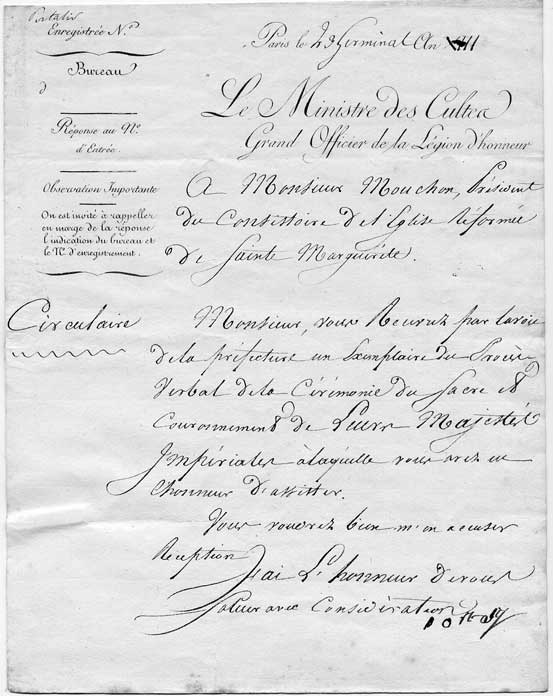 Portalis
Enregistrée N.º
Bureau
d
Réponse au Nº
d'Entrée.
Observation Importante
On est invité à rappeller
en marge de la réponse
l'indication du bureau et
le Nº d'enregistrement.
Paris le 23 Germinal An
Le Ministre des Cultes
Grand Officier de la Légion d'honneur
A Monsieur Mouchon, Président
du Consistoire de l'Eglise Réformée
de Sainte Marguerite.
Circulaire
Monsieur, vous Recevrez par la voie
de la préfecture un Exemplaire du Procès
Verbal de la Cérémonie du Sacre et
Couronnement de Leurs Majestés
Impériales à laquelle vous avez eu
l'honneur d'assister.
Vous voudrez bien m'en accuser
Reception
J'ai L'honneur de vous
Saluer avec Considération